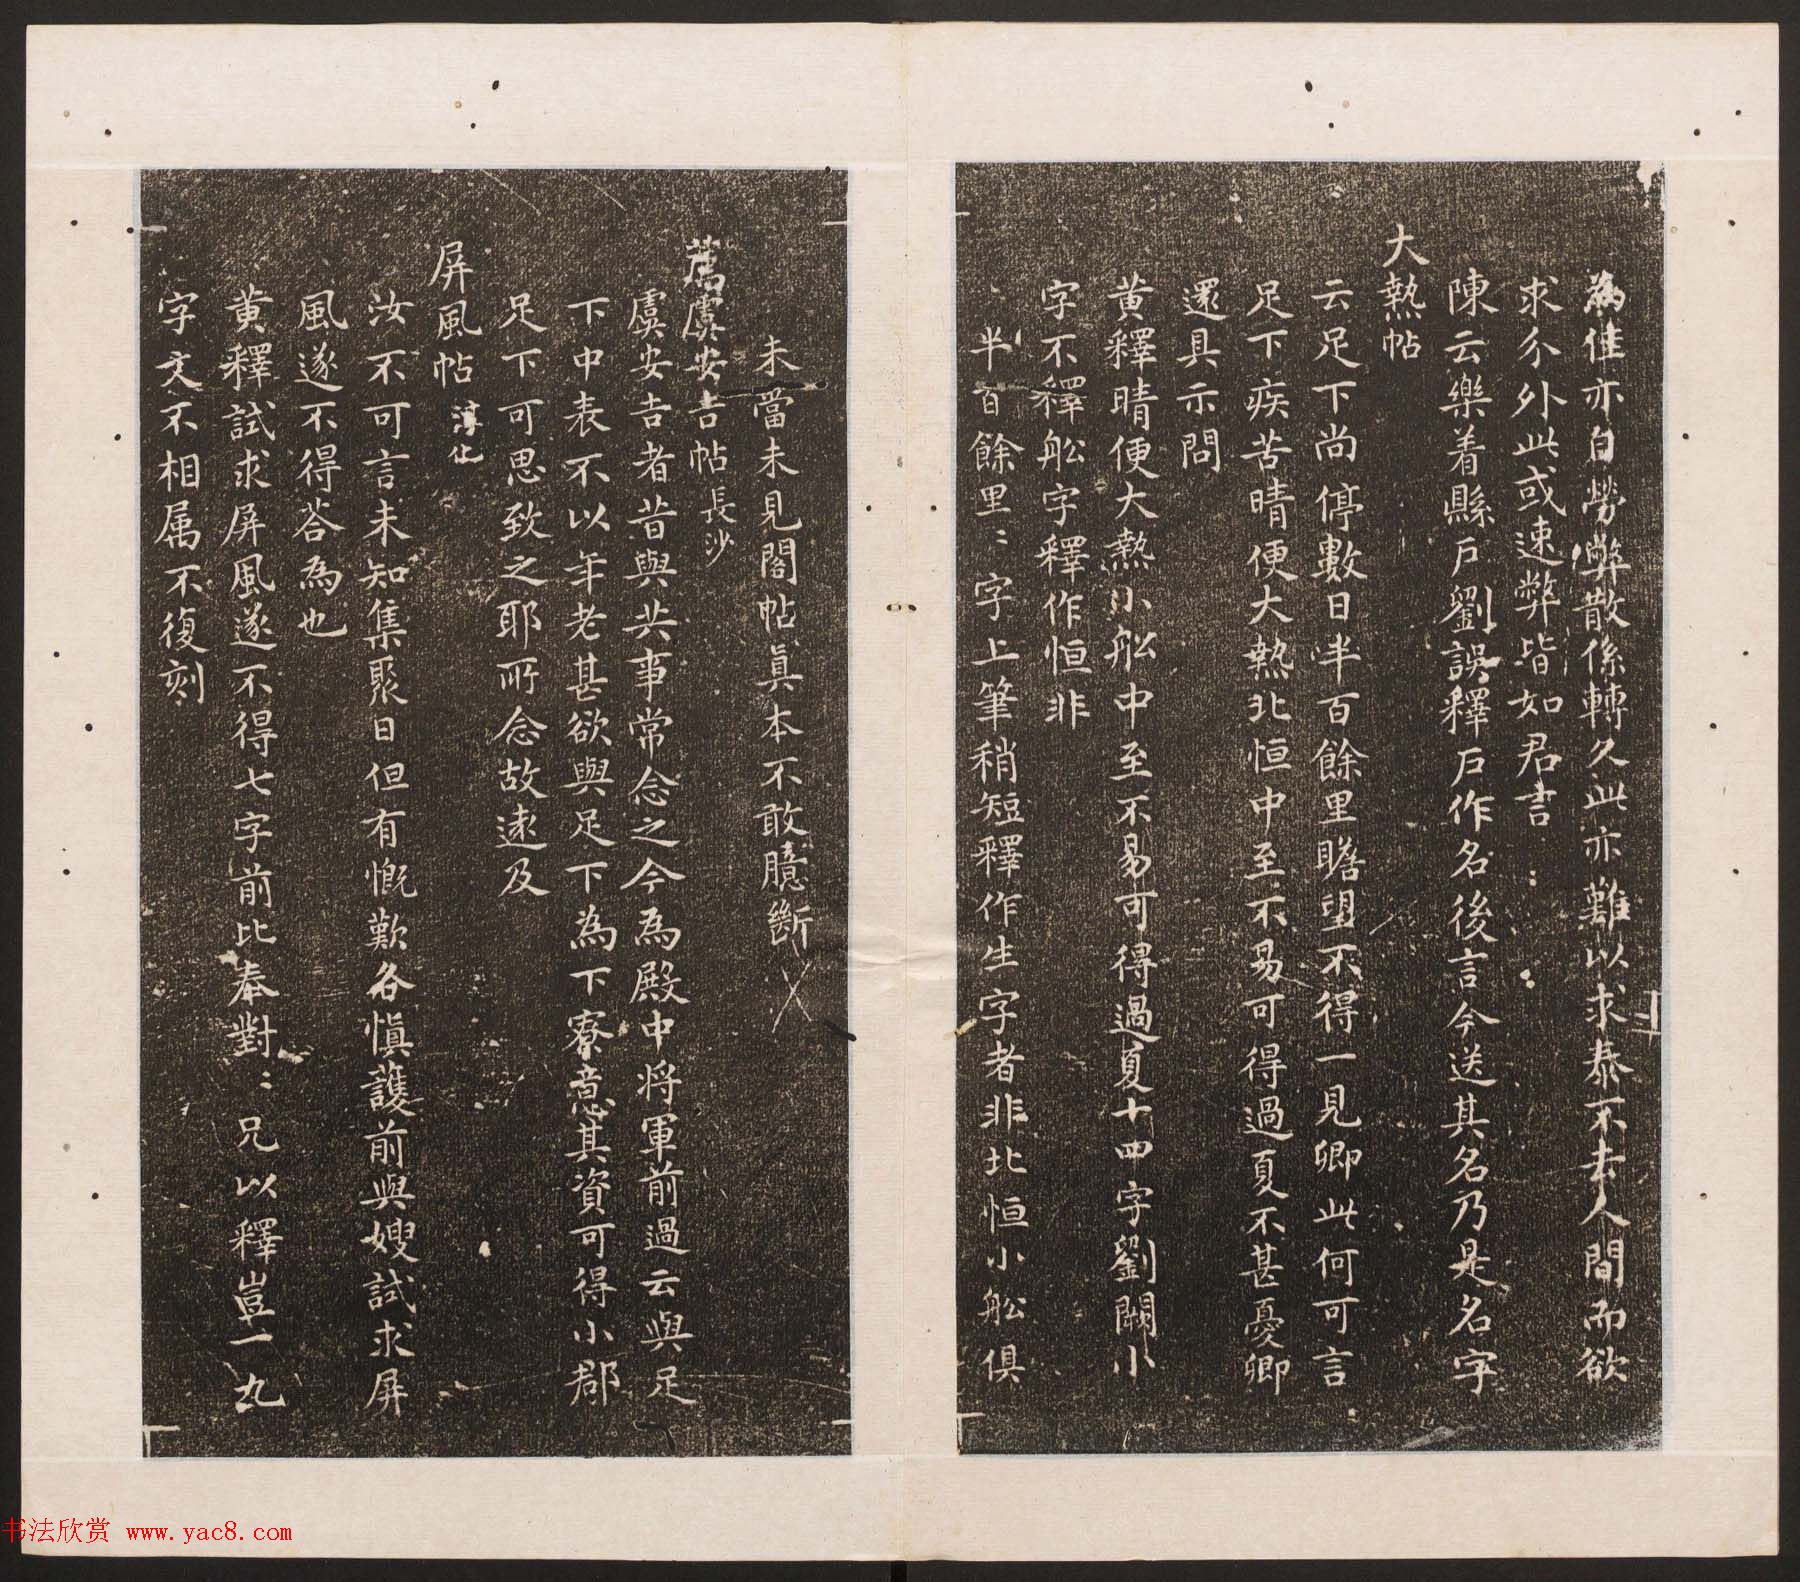 為佳亦自勞弊散係轉久此亦難以求泰不去人間而欲
求分外此或速弊皆如君言
陳云樂着縣戶劉誤釋戶作名後言今送其名乃是名字
大熱帖
云足下尚停數日半百餘里瞻望不得一見卿此何可言
足下疾苦晴便大熱北恒中至不易可得過夏不甚憂卿
還具示問
黃釋晴便大熱小舩中至不易可得過夏十四字劉闕小
字不釋舩字釋作恒非
半百餘里：字上筆稍短釋作生字者非北恒小舩俱
未當未見閣帖眞本不敢臆斷
薦虞安吉帖 長沙
虞安吉者昔與共事常念之今為殿中将軍前過云與足
下中表不以年老甚欲與足下為下寮意其資可得小郡
足下可思致之耶所念故遠及
屏風帖 淳化
汝不可言未知集聚日但有慨歎各慎護前與嫂試求屏
風遂不得荅為也
黃釋試求屏風遂不得七字前比奉對：兄以釋豈一九
字文不相属不復刻
书法欣赏 www.yac8.com